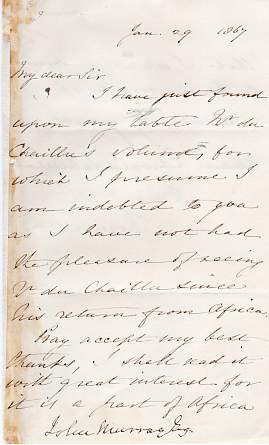 Jan. 29 1867
My dear Sir
I have just found
upon my table Mr du
Chaillu's volume, for
which I presume I
am indebted to you
as I have not had
the pleasure of seeing
du Chaillu since
his return from Africa.
Pray accept my best
thanks, I shall read it
with great interest for
it is a part of Africa
John Murray Esq